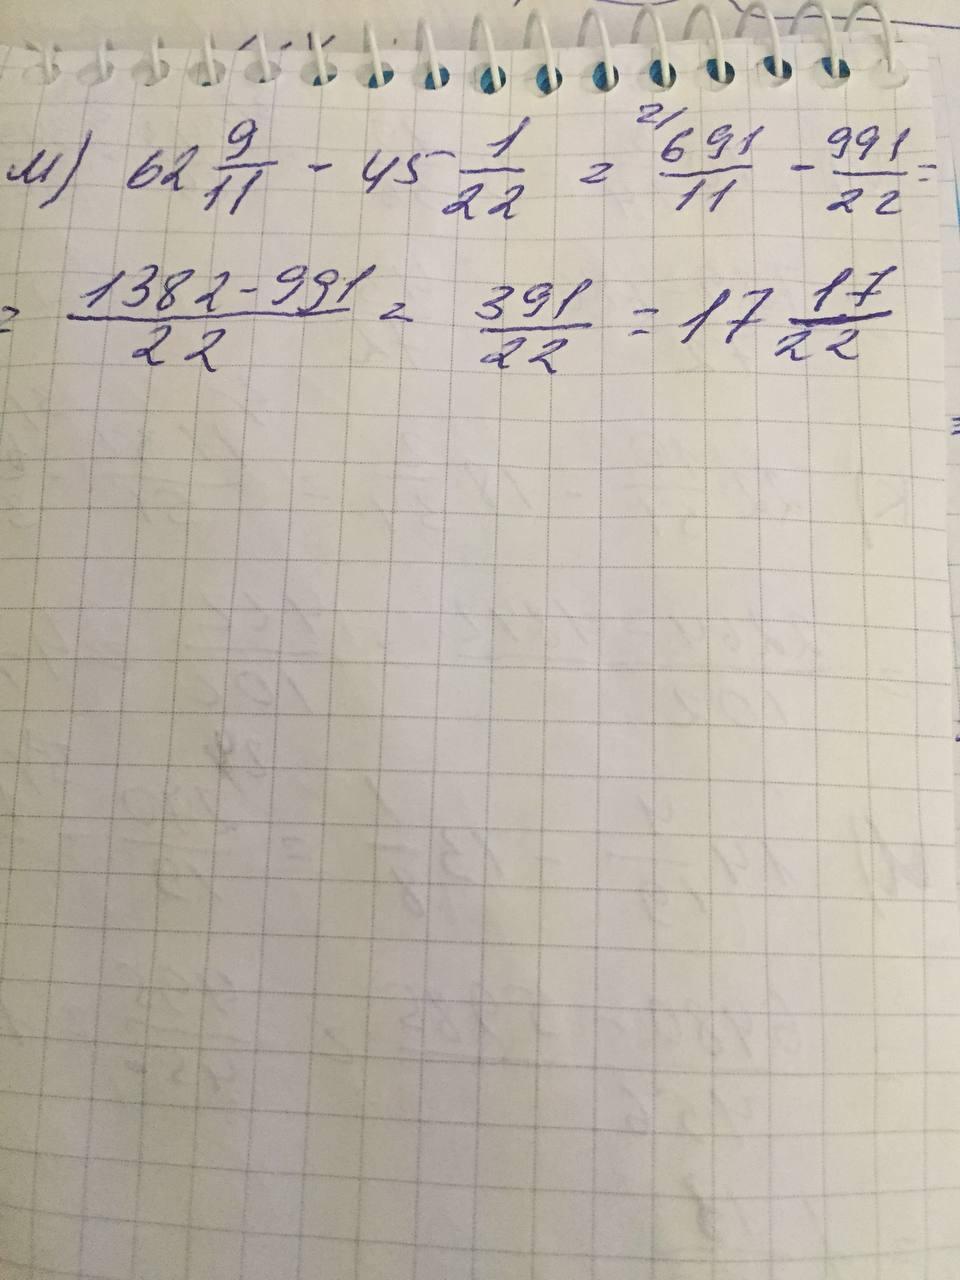 м) 62 9/11 - 45 1/22 = 2/ 691/11 - 991/22 =
= 1382-991/22 = 391/22 = 17 17/22